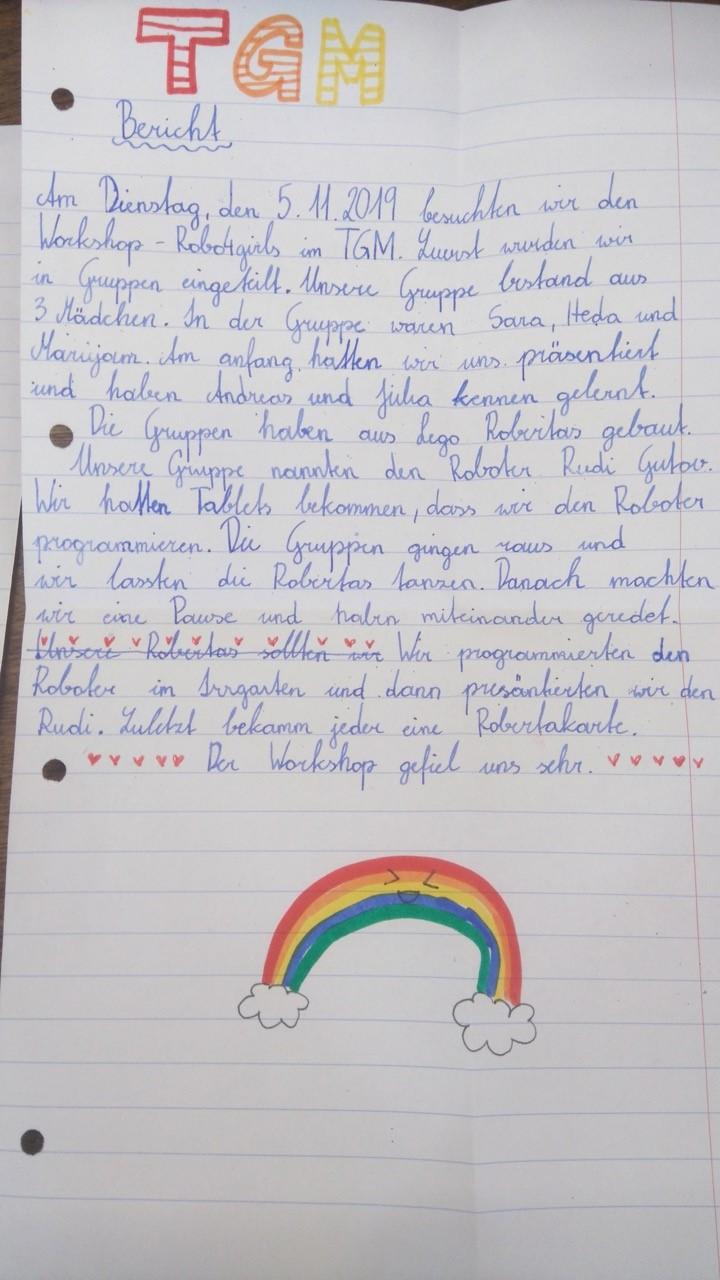 TGM
Bericht
Am Dienstag, den 5.11.2019 besuchten wir den
Workshop - Robot4girls im TGM. Zuerst wurden wir
in Gruppen eingeteilt. Unsere Gruppe bestand aus
3 Mädchen. In der Gruppe waren Sara, Heda und
Marijam. Am anfang hatten wir uns präsentiert
und haben Andreas und Julia kennen gelernt.
Die Gruppen haben aus Lego Robertas gebaut.
Unsere Gruppe nannten den Roboter Rudi
Wir hatten Tablets bekommen, dass wir den Roboter
programmieren. Die Gruppen gingen raus und
wir lassten die Robertas tanzen. Danach machten
wir eine Pause und haben miteinander geredet.
Unsere Robertas sollten wir Wir programmierten den
Roboter im Irrgarten und dann presäntierten wir den
Rudi. Zuletzt bekamm jeder eine Robertakarte.
Der Workshop gefiel uns sehr.